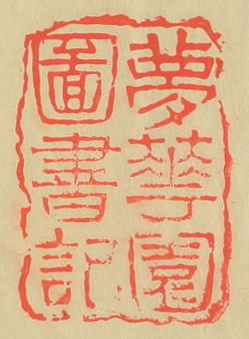 夢華園
圖書記